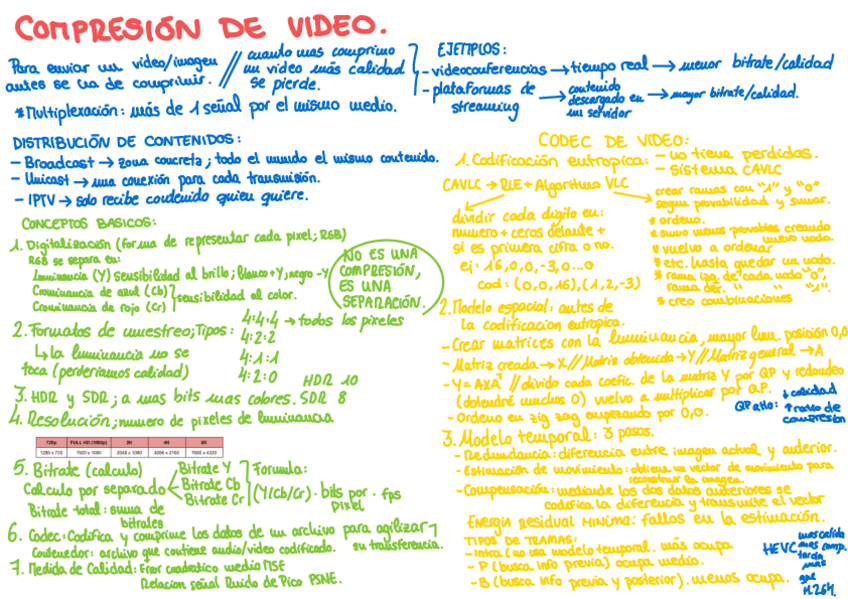 COMPRESIÓN DE VIDEO.
Para enviar un video/imagen
antes se va de comprimir.
cuando mas comprimo
un video más calidad
se pierde.
EJEMPLOS:
- videoconferencias → tiempo real → menor bitrate/calidad
- plataformas de
streaming → contenido
descargado en
un servidor → mayor bitrate/calidad.
* Multiplexación: más de 1 señal por el mismo medio.
DISTRIBUCIÓN DE CONTENIDOS:
- Broadcast → zona concreta; todo el mundo el mismo contenido.
- Unicast → una conexión para cada transmisión.
- IPTV → solo recibe contenido quien quiere.
CONCEPTOS BASICOS:
1. Digitalización (forma de representar cada pixel; RGB)
RGB se separa en:
Luminancia (Y) sensibilidad al brillo; blanco +Y; negro -Y
Crominancia de azul (Cb)
Crominancia de rojo (Cr)
sensibilidad al color.
NO ES UNA
COMPRESIÓN,
ES UNA
SEPARACIÓN.
2. Formatos de muestreo; Tipos:
4:4:4 → todos los pixeles
4:2:2
4:1:1
4:2:0
↳ la luminancia no se
toca (perderiamos calidad)
HDR 10
3. HDR y SDR; a mas bits mas colores. SDR 8
4. Resolución; numero de pixeles de luminancia
720p FULL HD (1080p) 2K 4K 8K
1280 x 720 1920 x 1080 2048 x 1080 4096 x 2160 7680 x 4320
5. Bitrate (calculo)
Calculo por separado
Bitrate Y
Bitrate Cb
Bitrate Cr
Formula:
(Y/Cb/Cr) · bits por pixel · fps
Bitrate total: suma de
bitrates
6. Codec: Codifica y comprime los datos de un archivo para agilizar
su transferencia.
Contenedor: archivo que contiene audio/video codificado.
7. Medida de Calidad: Error cuadratico medio MSE
Relacion señal Ruido de Pico PSNE.
CODEC DE VIDEO:
1. Codificación entropica:
- no tiene perdidas.
- sistema CAVLC
CAVLC → RLE + Algoritmo VLC
dividir cada digito en:
numero + ceros delante +
si es primera cifra o no.
ej: 16,0,0,-3,0...0
cod: (0,0,16),(1,2,-3)
crear ramas con "1" y "0"
segun provabilidad y sumar.
* ordeno.
* sumo menos provables creando
nuevo nodo.
* vuelvo a ordenar
* etc. hasta quedar un nodo.
* rama izq. de cada nodo "0",
rama der. " " " "1".
* creo combinaciones
2. Modelo espacial: antes de
la codificacion entropica.
- Crear matrices con la luminancia, mayor lum. posición 0,0
- Matriz creada → X // Matriz obtenida → Y // Matriz general → A
- Y = AXAᵗ // divido cada coefic. de la matriz Y por QP y redondeo
(obtendré muchos 0) vuelvo a multiplicar por QP.
- Ordeno en zig zag empezando por 0,0.
QP alto: ↓ calidad
↑ ratio de
compresion
3. Modelo temporal: 3 pasos.
- Redundancia: diferencia entre imagen actual y anterior.
- Estimación de movimiento: obtiene un vector de movimiento para
reconstruir la imagen.
- Compensación: mediante los dos datos anteriores se
codifica la diferencia y transmite el vector
ENERGIA RESIDUAL MINIMA: fallos en la estimación.
TIPOS DE TRAMAS:
- Intra (no usa modelo temporal. más ocupa
- P (busca info previa) ocupa medio.
- B (busca info previa y posterior). menos ocupa.
HEVC
mas calida
mas comp.
tarda
mas
que
H.264.